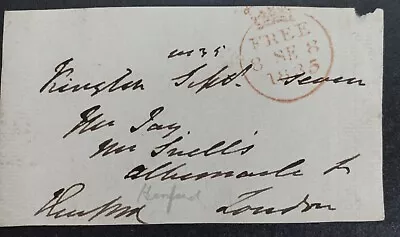 FREE
8 SE 8
1835
1835
Kington Sept. Seven
Mr Jay
Mr Snell's
Albemarle St
London
Hereford